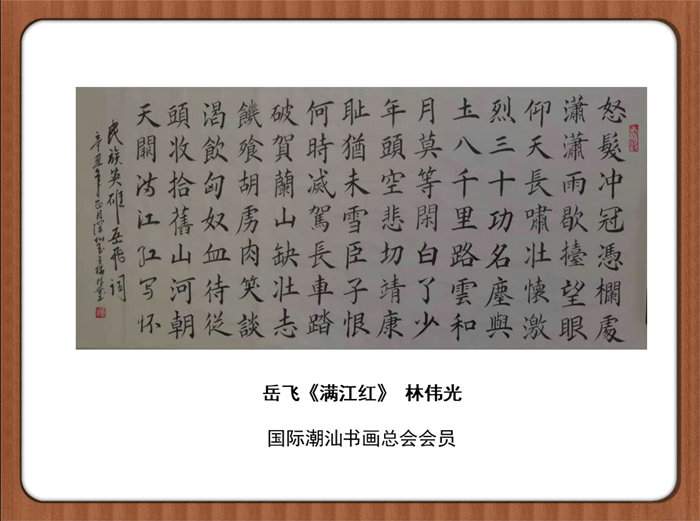 怒髮冲冠憑欄處
瀟瀟雨歇擡望眼
仰天長嘯壯懷激
烈三十功名塵與
土八千里路雲和
月莫等閑白了少
年頭空悲切靖康
耻猶未雪臣子恨
何時滅駕長車踏
破賀蘭山缺壯志
饑飧胡虜肉笑談
渴飲匈奴血待從
頭收拾舊山河朝
天闕满江红写怀
民族英雄岳飛词
辛丑年正月
岳飞《满江红》 林伟光
国际潮汕书画总会会员